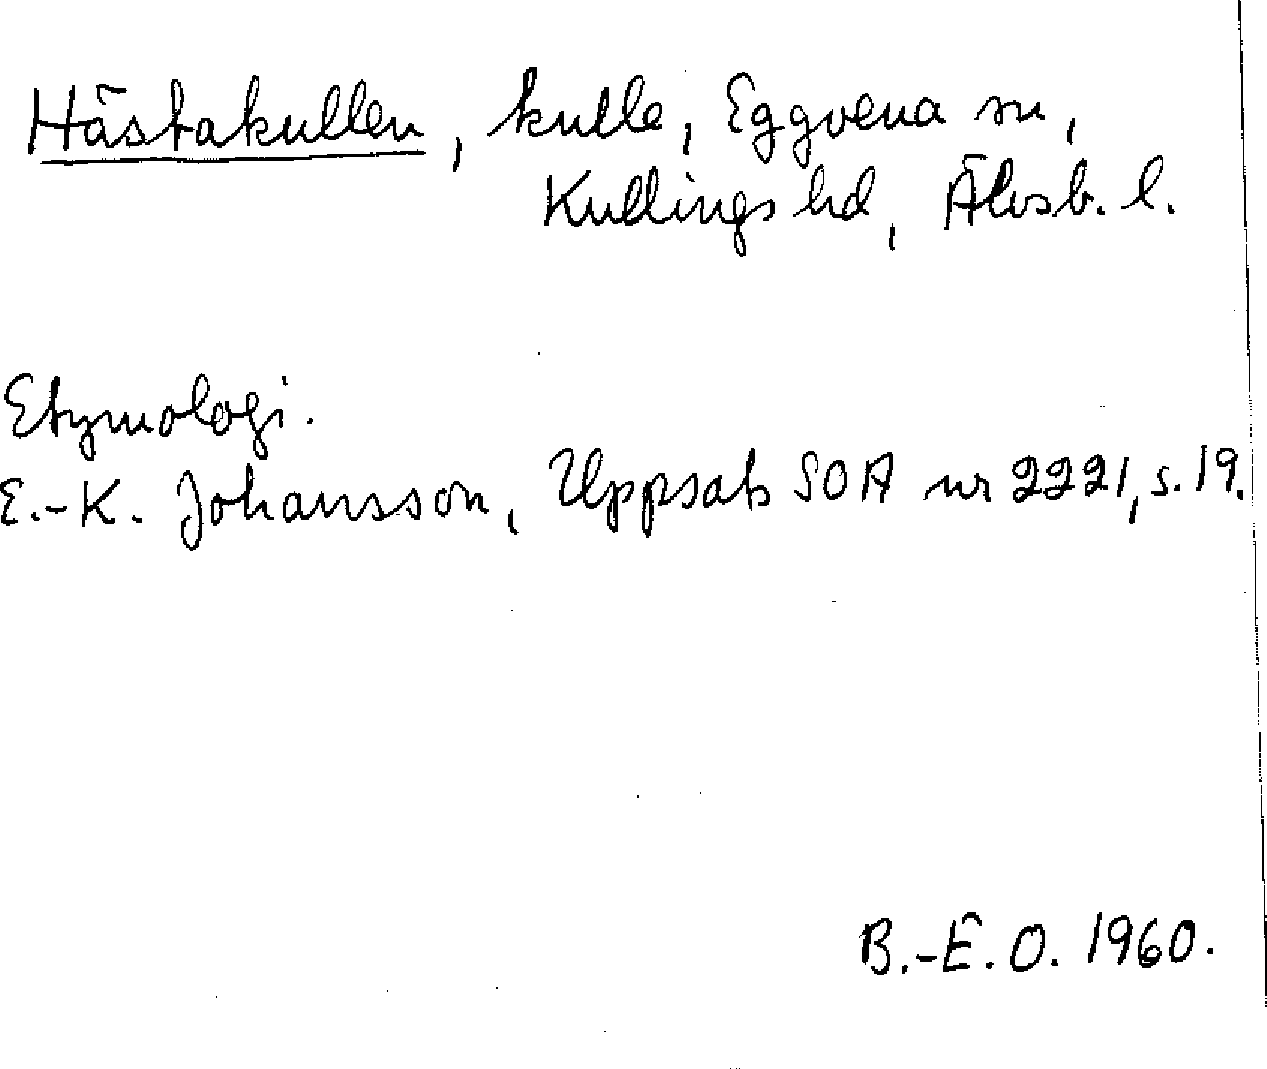 Hästakullen, kulle, Eggvena sn,
Kullings hd, Älvsb. l.
Etymologi.
E.-K. Johansson, Uppsats SOA nr 2221, s. 19.
B.-E. O. 1960.